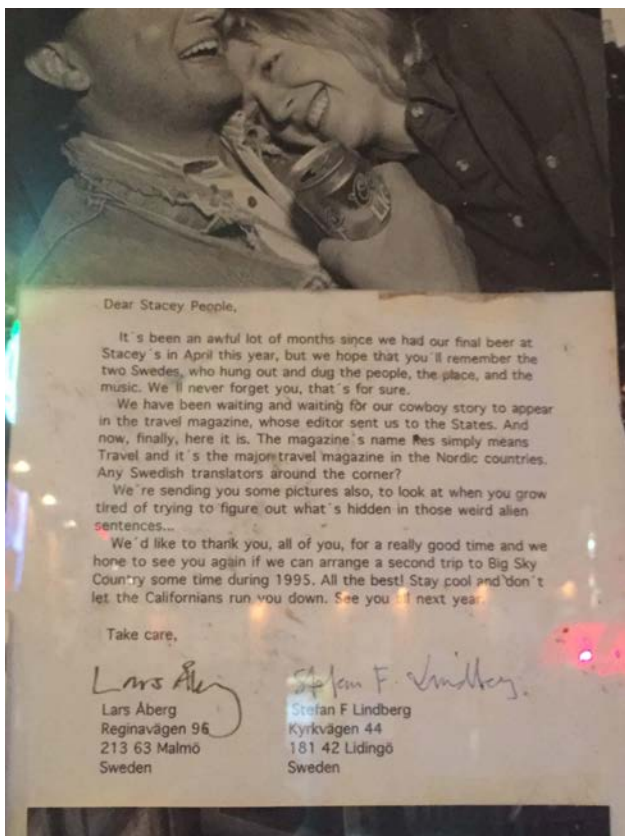 Dear Stacey People,
It´s been an awful lot of months since we had our final beer at
Stacey´s in April this year, but we hope that you´ll remember the
two Swedes, who hung out and dug the people, the place, and the
music. We´ll never forget you, that´s for sure.
We have been waiting and waiting for our cowboy story to appear
in the travel magazine, whose editor sent us to the States. And
now, finally, here it is. The magazine´s name Res simply means
Travel and it´s the major travel magazine in the Nordic countries.
Any Swedish translators around the corner?
We´re sending you some pictures also, to look at when you grow
tired of trying to figure out what´s hidden in those weird alien
sentences...
We´d like to thank you, all of you, for a really good time and we
hope to see you again if we can arrange a second trip to Big Sky
Country some time during 1995. All the best! Stay cool and don´t
let the Californians run you down. See you next year.
Take care,
Lars Åberg Stefan F. Lindberg.
Lars Åberg Stefan F Lindberg
Reginavägen 96 Kyrkvägen 44
213 63 Malmö 181 42 Lidingö
Sweden Sweden